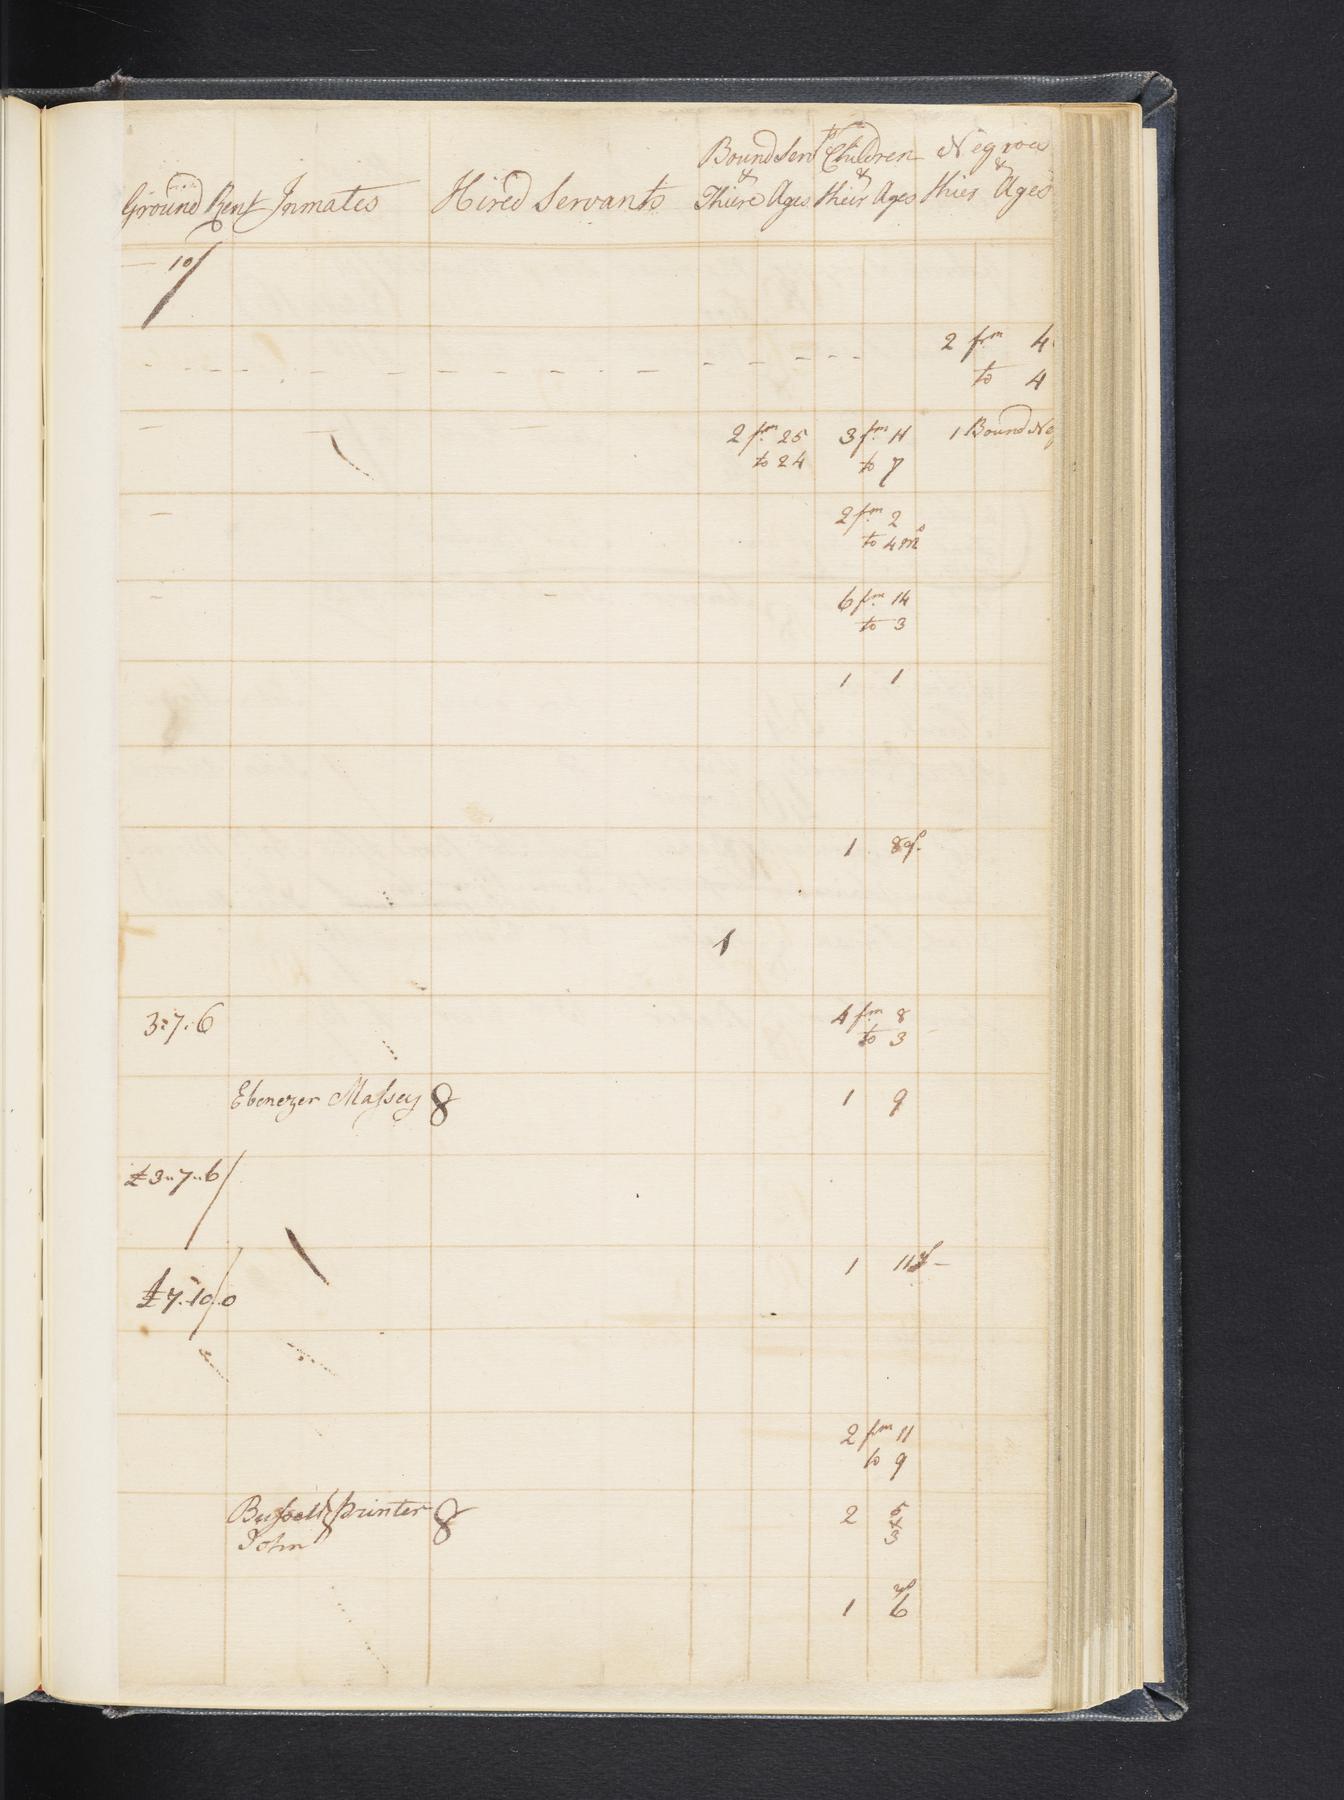 Bound Servts Children Negroes
& & &
Ground Rent Inmates Hired Servants Thiere Ages their Ages thier Ages
10/
2 frm 4
to 4
2 fm 25 3 fm 11 1 Bound Neg
to 24 to 7
2 fm 2
to 4 mo
6 fm 14
to 3
1 1
1 8
1
3:7:6 4 fm 8
to 3
Ebenezer Massey 8 1 9
£3"7"6/
1 11
£7.10.0
2 fm 11
to 9
Printer 8 2 5
John &
3
1 6